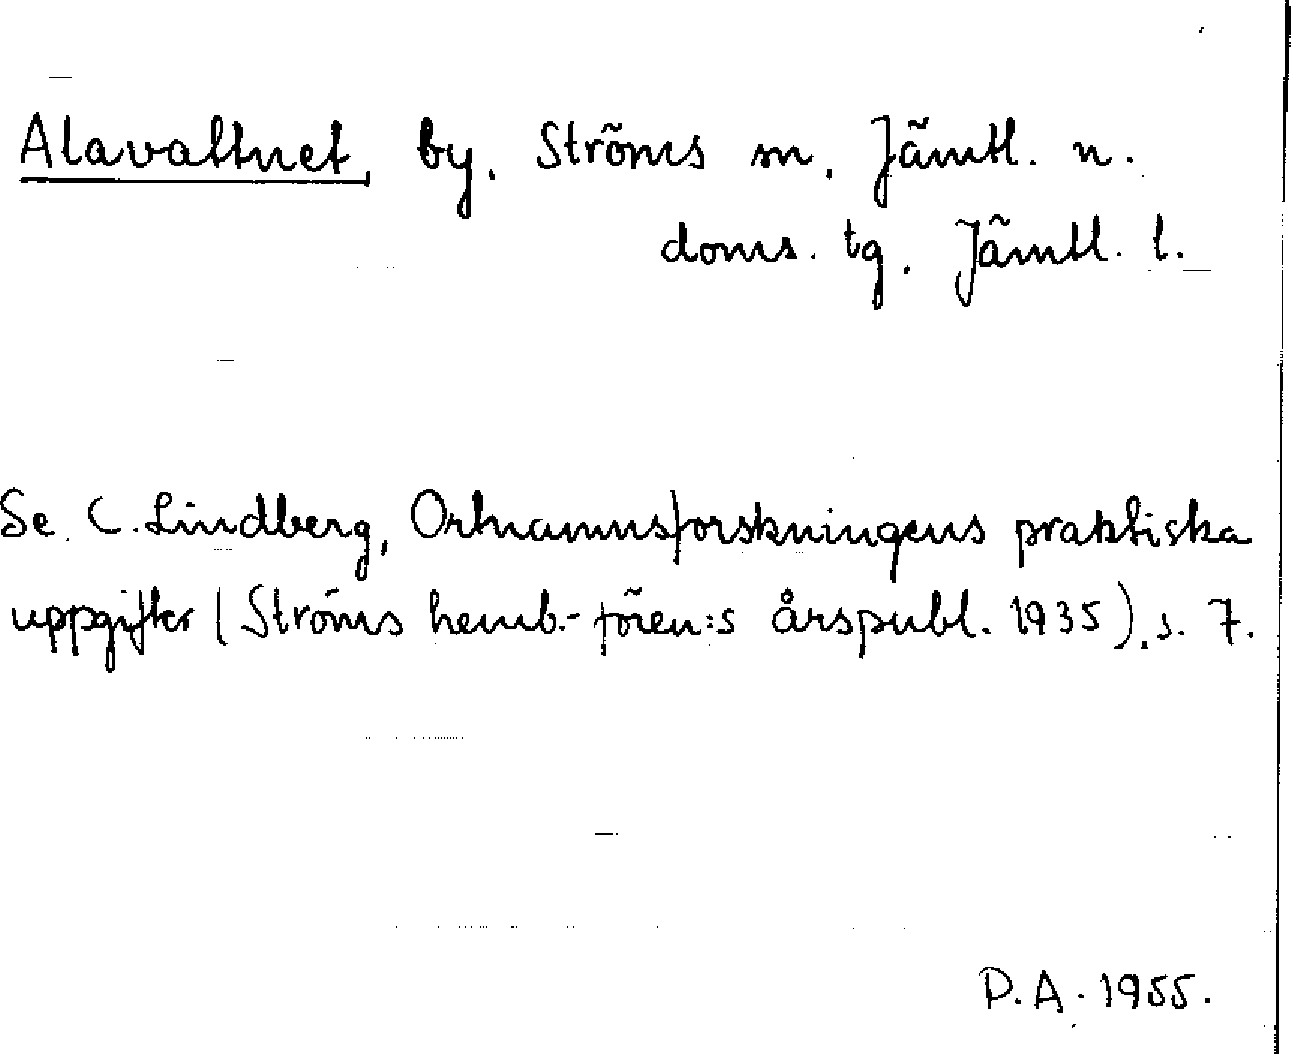 Alavattnet, by. Ströms sn. Jämtl. n.
doms. tg. Jämtl. l.
Se C. Lindberg, Ortnamnsforskningens praktiska
uppgifter (Ströms hemb.-fören:s årspubl. 1935). s. 7.
D. A. 1955.